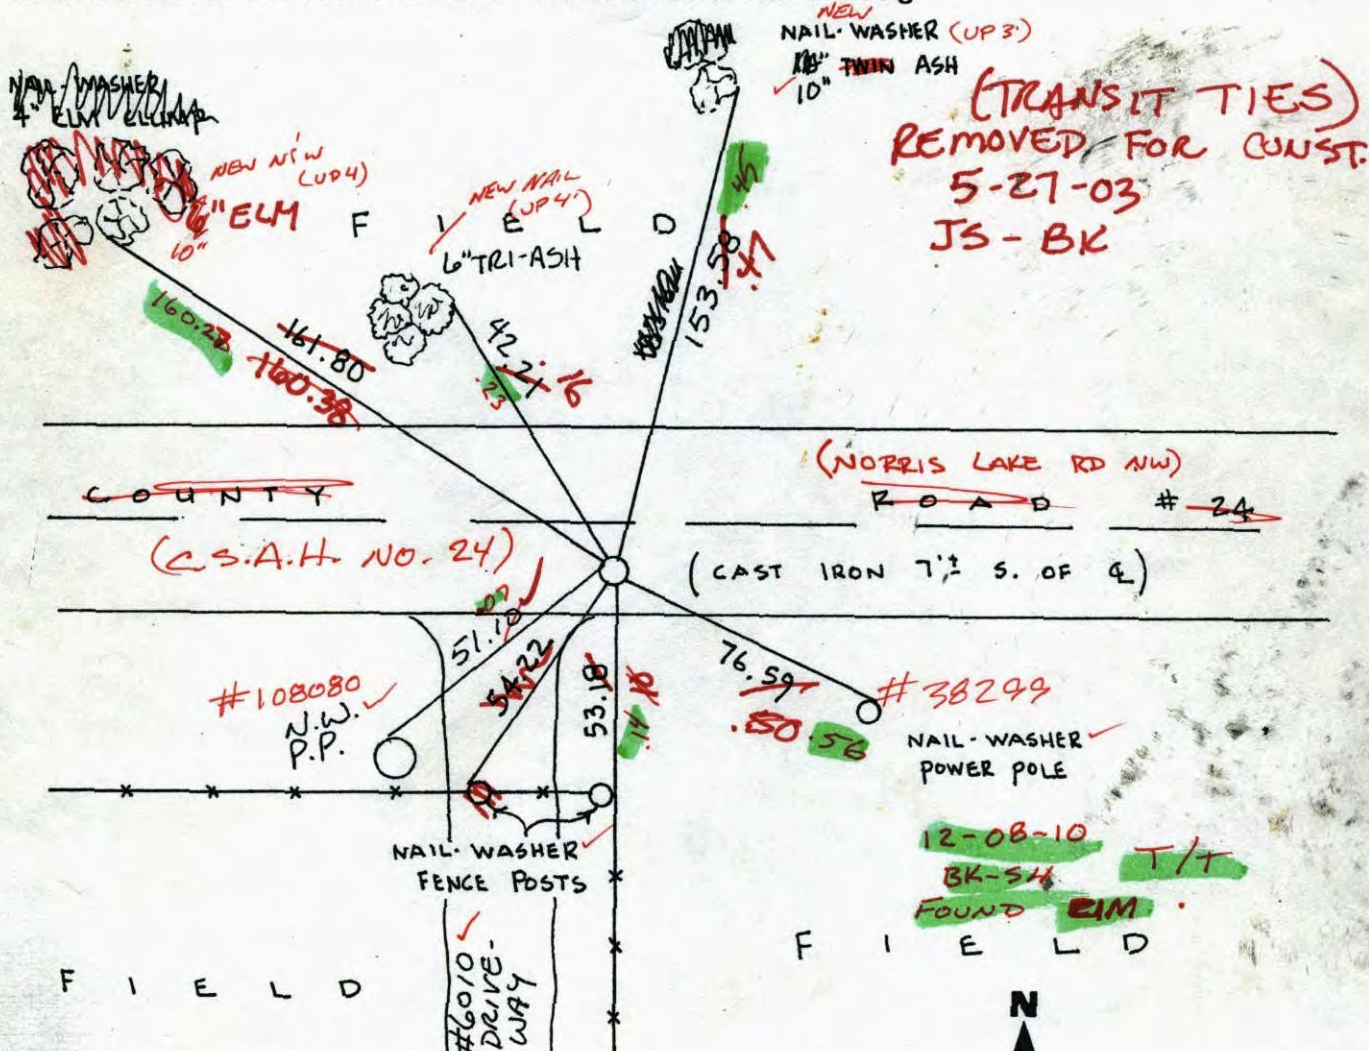 NEW
NAIL-WASHER (UP 3')
TWIN ASH
10"
(TRANSIT TIES)
REMOVED FOR CONST.
5-27-03
JS-BK
NAIL-WASHER
4" ELM
NEW N&W
(UP4)
6" ELM
10"
NEW NAIL
(UP 4')
6" TRI-ASH
F I E L D
45
153.58
.47
160.28
161.80
160.38
42.21
.23
16
(NORRIS LAKE RD NW)
COUNTY ROAD # 24
(C.S.A.H. NO. 24)
(CAST IRON 7'± S. OF ℄)
07
51.10
54.22
53.18
.16
.14
76.59
.50 .56
#108080
N.W.
P.P.
#38299
NAIL-WASHER
POWER POLE
NAIL-WASHER
FENCE POSTS
12-08-10
BK-SH T/T
FOUND RIM
F I E L D
F I E L D
#6010
DRIVE-
WAY
N